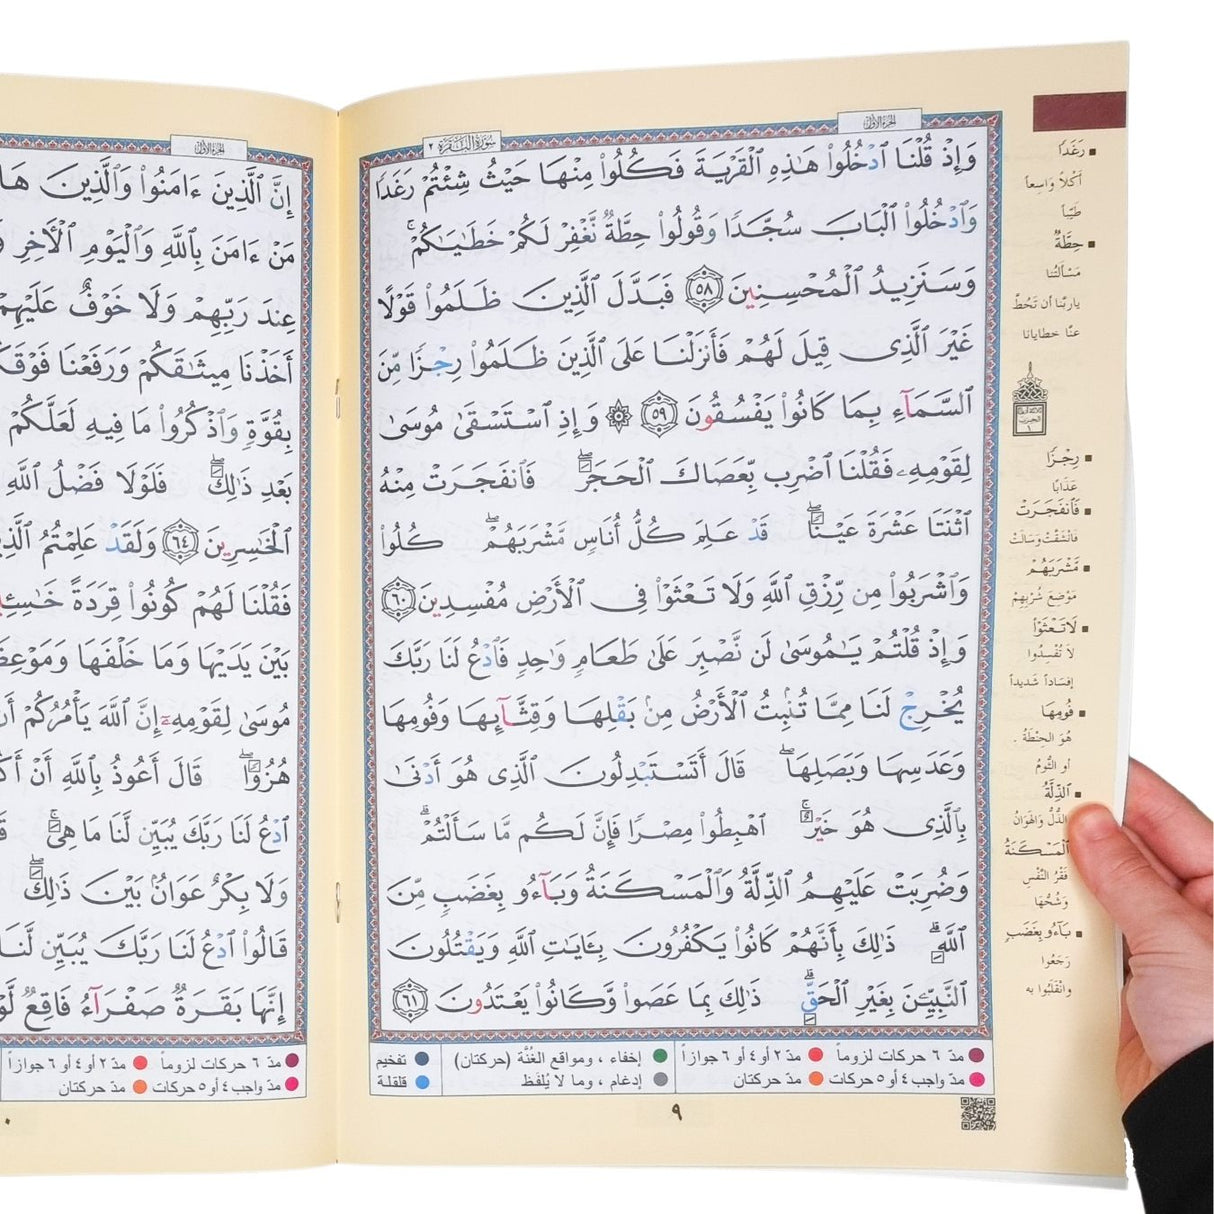 الجزء الأول
سورة البقرة ٢
وَإِذْ قُلْنَا ٱدْخُلُوا۟ هَـٰذِهِ ٱلْقَرْيَةَ فَكُلُوا۟ مِنْهَا حَيْثُ شِئْتُمْ رَغَدًا
وَٱدْخُلُوا۟ ٱلْبَابَ سُجَّدًا وَقُولُوا۟ حِطَّةٌ نَّغْفِرْ لَكُمْ خَطَـٰيَـٰكُمْ ۚ
وَسَنَزِيدُ ٱلْمُحْسِنِينَ ٥٨ فَبَدَّلَ ٱلَّذِينَ ظَلَمُوا۟ قَوْلًا
غَيْرَ ٱلَّذِى قِيلَ لَهُمْ فَأَنزَلْنَا عَلَى ٱلَّذِينَ ظَلَمُوا۟ رِجْزًا مِّنَ
ٱلسَّمَآءِ بِمَا كَانُوا۟ يَفْسُقُونَ ٥٩ ۞ وَإِذِ ٱسْتَسْقَىٰ مُوسَىٰ
لِقَوْمِهِۦ فَقُلْنَا ٱضْرِب بِّعَصَاكَ ٱلْحَجَرَ ۖ فَٱنفَجَرَتْ مِنْهُ
ٱثْنَتَا عَشْرَةَ عَيْنًا ۖ قَدْ عَلِمَ كُلُّ أُنَاسٍ مَّشْرَبَهُمْ ۖ كُلُوا۟
وَٱشْرَبُوا۟ مِن رِّزْقِ ٱللَّهِ وَلَا تَعْثَوْا۟ فِى ٱلْأَرْضِ مُفْسِدِينَ ٦٠
وَإِذْ قُلْتُمْ يَـٰمُوسَىٰ لَن نَّصْبِرَ عَلَىٰ طَعَامٍ وَٰحِدٍ فَٱدْعُ لَنَا رَبَّكَ
يُخْرِجْ لَنَا مِمَّا تُنۢبِتُ ٱلْأَرْضُ مِنۢ بَقْلِهَا وَقِثَّآئِهَا وَفُومِهَا
وَعَدَسِهَا وَبَصَلِهَا ۖ قَالَ أَتَسْتَبْدِلُونَ ٱلَّذِى هُوَ أَدْنَىٰ
بِٱلَّذِى هُوَ خَيْرٌ ۚ ٱهْبِطُوا۟ مِصْرًا فَإِنَّ لَكُم مَّا سَأَلْتُمْ ۗ
وَضُرِبَتْ عَلَيْهِمُ ٱلذِّلَّةُ وَٱلْمَسْكَنَةُ وَبَآءُو بِغَضَبٍ مِّنَ
ٱللَّهِ ۗ ذَٰلِكَ بِأَنَّهُمْ كَانُوا۟ يَكْفُرُونَ بِـَٔايَـٰتِ ٱللَّهِ وَيَقْتُلُونَ
ٱلنَّبِيِّـۧنَ بِغَيْرِ ٱلْحَقِّ ۗ ذَٰلِكَ بِمَا عَصَوا۟ وَّكَانُوا۟ يَعْتَدُونَ ٦١
رَغَدًا
أكلاً واسعاً
طيّباً
حِطَّةٌ
مسألتنا
ياربّنا أن تحُطَّ
عنّا خطايانا
رِجْزًا
عذابًا
فَٱنفَجَرَتْ
فانشقّت وسالت
مَّشْرَبَهُمْ
موضع شُربهم
لَا تَعْثَوْا۟
لا تُفسدوا
إفساداً شديداً
فُومِهَا
هو الحِنطة .
أو الثّوم
ٱلذِّلَّةُ
الذُّلّ والهوان
ٱلْمَسْكَنَةُ
فقر النّفس
وشُحّها
بَآءُو بِغَضَبٍ
رجعوا
وانقلبوا به
مدّ ٦ حركات لزوماً
مدّ ٢ أو ٤ أو ٦ جوازاً
إخفاء ، ومواقع الغُنَّة (حركتان)
تفخيم
مدّ واجب ٤ أو ٥ حركات
مدّ حركتان
إدغام ، وما لا يُلفَظ
قلقلة
٩
الجزء الأول
إِنَّ ٱلَّذِينَ ءَامَنُوا۟ وَٱلَّذِينَ
مَنْ ءَامَنَ بِٱللَّهِ وَٱلْيَوْمِ ٱلْـَٔاخِرِ
عِندَ رَبِّهِمْ وَلَا خَوْفٌ عَلَيْهِمْ
أَخَذْنَا مِيثَـٰقَكُمْ وَرَفَعْنَا
بِقُوَّةٍ وَٱذْكُرُوا۟ مَا فِيهِ لَعَلَّكُمْ
بَعْدِ ذَٰلِكَ ۖ فَلَوْلَا فَضْلُ ٱللَّهِ
ٱلْخَـٰسِرِينَ ٦٤ وَلَقَدْ عَلِمْتُمُ
فَقُلْنَا لَهُمْ كُونُوا۟ قِرَدَةً
بَيْنَ يَدَيْهَا وَمَا خَلْفَهَا
مُوسَىٰ لِقَوْمِهِۦٓ إِنَّ ٱللَّهَ يَأْمُرُكُمْ
هُزُوًا ۖ قَالَ أَعُوذُ بِٱللَّهِ أَنْ
ٱدْعُ لَنَا رَبَّكَ يُبَيِّن لَّنَا مَا هِىَ ۚ
وَلَا بِكْرٌ عَوَانٌۢ بَيْنَ ذَٰلِكَ ۖ
قَالُوا۟ ٱدْعُ لَنَا رَبَّكَ يُبَيِّن لَّنَا
إِنَّهَا بَقَرَةٌ صَفْرَآءُ فَاقِعٌ
مدّ ٦ حركات لزوماً
مدّ ٢ أو ٤ أو ٦ جوازاً
مدّ واجب ٤ أو ٥ حركات
مدّ حركتان